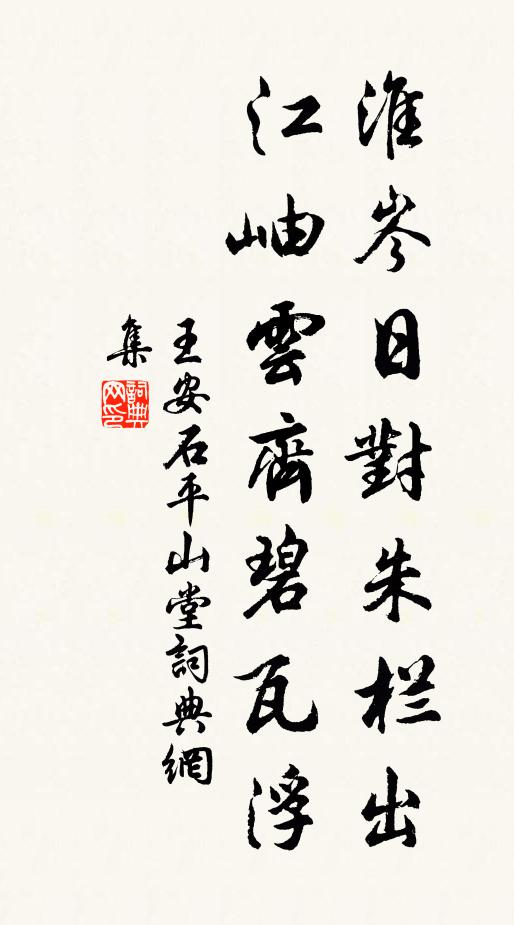 淮岑日對朱栏出
江岫雲齊碧瓦浮
王安石平山堂詞典網
集
詞典網印